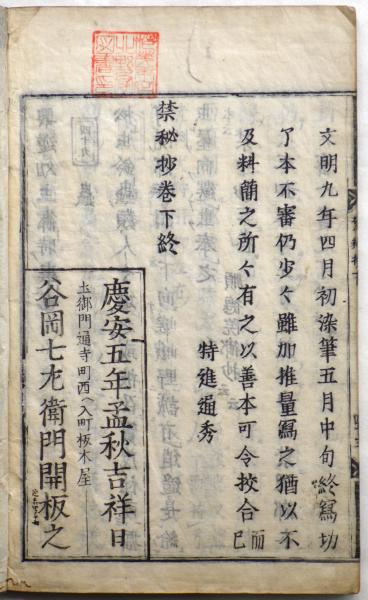 文明九年四月初染筆五月中旬終寫功
了本不審仍少々雖加推量寫之猶以不
及料簡之所々有之以善本可令挍合而已
特進通秀
禁秘抄巻下終
慶安五年孟秋吉祥日
土御門通寺町西ヘ入町板木屋
谷岡七左衛門開板之